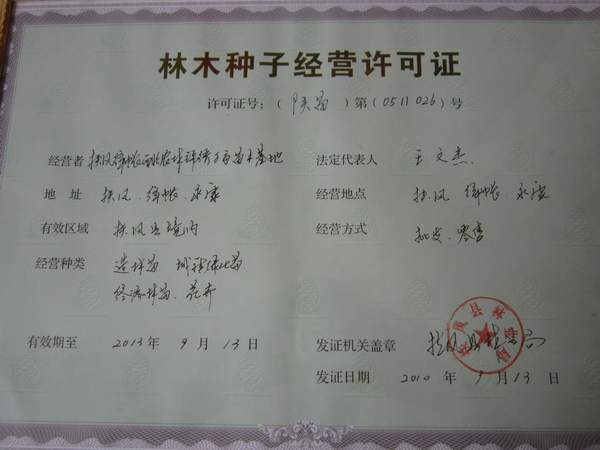 林木种子经营许可证
许可证号：（陕苗）第（0511026）号
经营者 扶风绛帐 苗木基地
法定代表人 王文杰
地址 扶风、绛帐、永康
经营地点 扶风 绛帐 永康
有效区域 扶风县境内
经营方式 批发、零售
经营种类 造林苗 城镇绿化苗
经济林苗、花卉
有效期至 2013年9月13日
发证机关盖章 扶风县林业局
发证日期 2010年 月13日
扶风县林业局